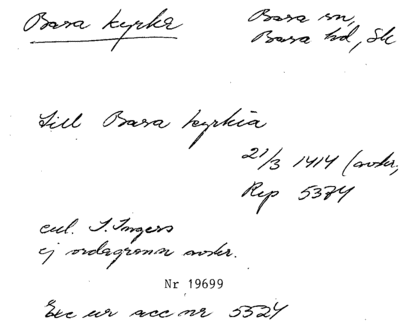 Bara kyrka
Bara sn,
Bara hd, Sk
till Bara kyrkia
21/3 1414 (avskr,
Rep 5374
enl. I. Ingers
ej ordagrann avskr.
Nr 19699
Exc ur acc nr 5524